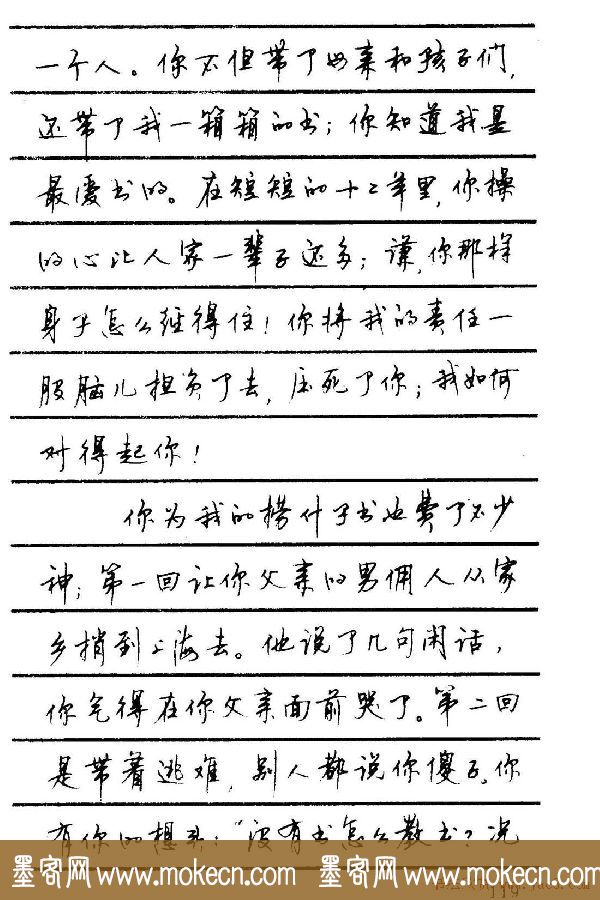 一个人。你不但带了母亲和孩子们，
还带了我一箱箱的书；你知道我是
最爱书的。在短短的十二年里，你操
的心比人家一辈子还多；谦，你那样
身子怎么经得住！你将我的责任一
股脑儿担负了去，压死了你；我如何
对得起你！
你为我的捞什子书也费了不少
神；第一回让你父亲的男佣人从家
乡捎到上海去。他说了几句闲话，
你气得在你父亲面前哭了。第二回
是带着逃难，别人都说你傻子。你
有你的想头：“没有书怎么教书？况
墨客网 www.mokecn.com 墨客网 www.mokecn.com